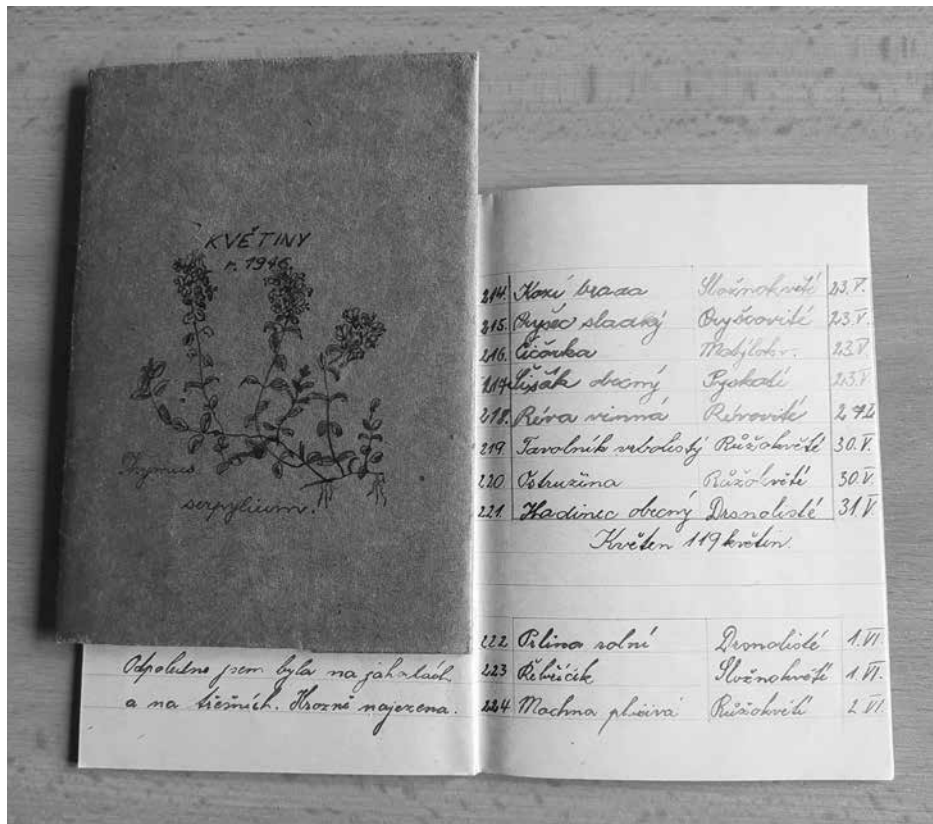 KVĚTINY
r. 1946
Thymus
serpyllum.
Odpoledne jsem byla na jahodách
a na třešních. Hrozně najezena.
214. Kozí brada Složnokvěté 23.V.
215. Pryšec sladký Pryšcovité 23.V.
216. Čičorka Motýlokv. 23.V.
217. Šišák obecný Pyskaté 23.V.
218. Réva vinná Révovité
219. Tavolník vrbolistý Růžokvěté 30.V.
220 Ostružina Růžokvěté 30.V.
221. Hadinec obecný Drsnolisté 31.V.
Květen 119 květin.
222 Prlina rolní Drsnolisté 1.VI.
223 Řebříčik Složnokvěté 1.VI.
224 Mochna Růžokvěté 2.VI.